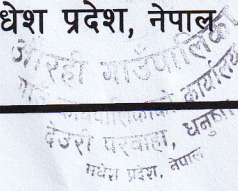 धेश प्रदेश, नेपाल
औरही गाउँपालिका
गाउँ कार्यपालिकाको कार्यालय
देउरी परवाहा, धनुषा
मधेश प्रदेश, नेपाल